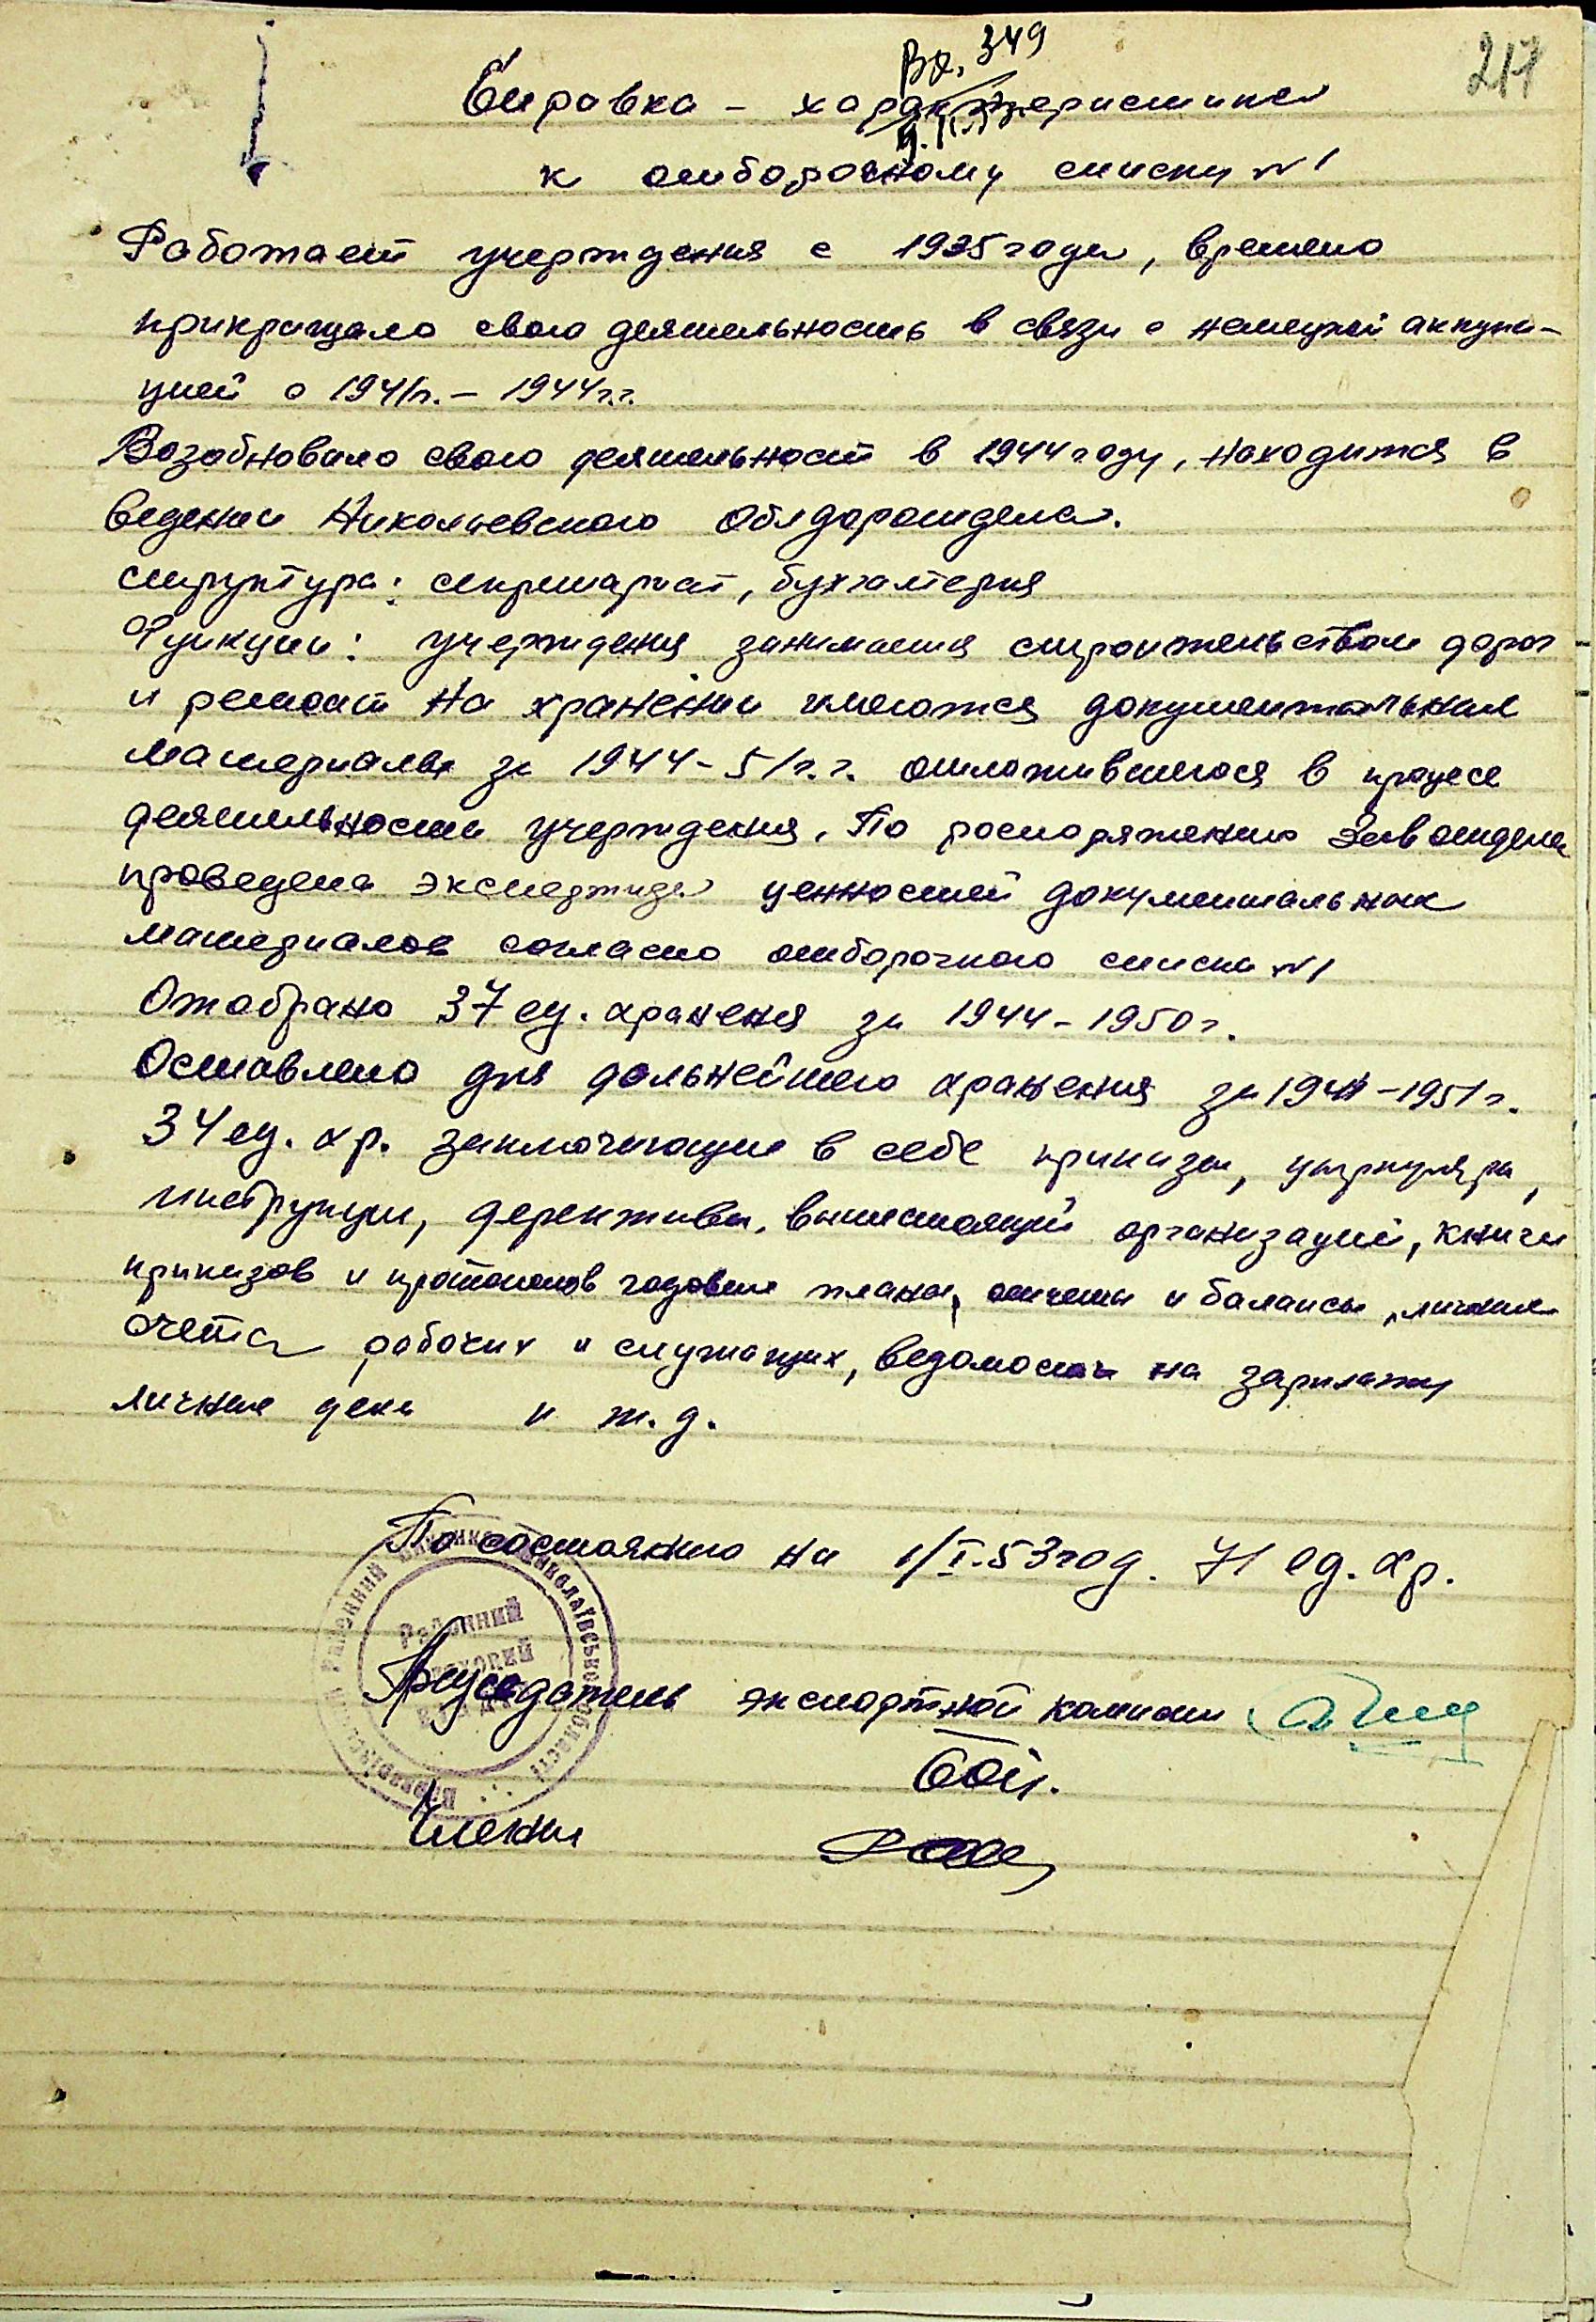 Вх. 349
217
Справка – характеристика
к отборочному списку №1
Работает учерждения с 1935 года, времено
прикращало свою деятельность в связи с немецкой аккупа-
цией с 1941г. – 1944г.г.
Возобновило свою деятельност в 1944 году, находится в
ведении Николаевского Облдоротдела.
структура: секретариат, бухгалтерия
Функции: учерждения занимается строительством дорог
и ремонт На хранении имеются документальние
материалы за 1944-51г.г. отложившегося в процесе
деятельности учерждения. По роспоряжению Завотдела
проведена экспертиза ценностей документальных
материалов согласно отборочного списка №1
Отобрано 37 ед. хранения за 1944-1950г.
Оставлено для дальнейшего хранения за 1944-1951г.
34 ед. хр. заключающие в себе приказы, цыркуляры,
инструкции, деректива, вышестоящей организаций, книги
приказов и протоколов годовые планы, отчеты и балансы, личные
счета рабочих и служащих, ведомости на зарплату
личные дела и т.д.
По состоянию на 1/I.53год. 71 ед. хр.
Районний
Председатель экспертной комисии
Члены